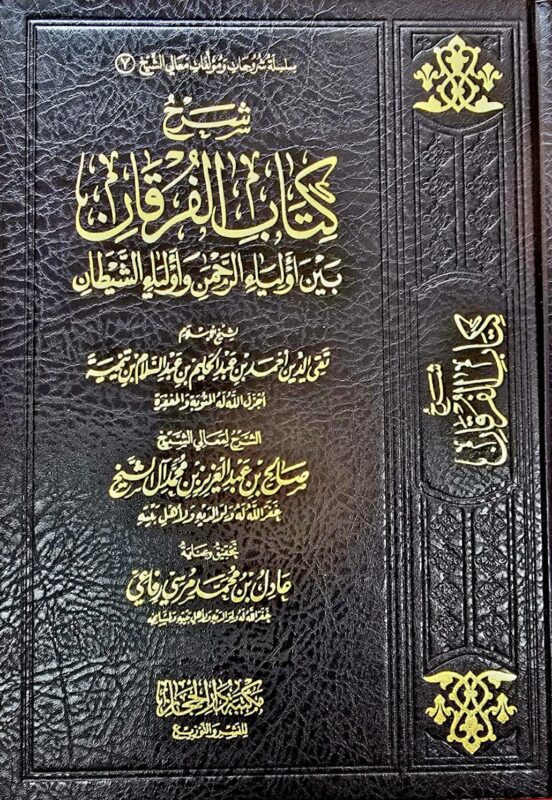 سلسلة شروحات ومؤلفات معالي الشيخ (٧)
شرح
كتاب الفرقان
بين أولياء الرحمن وأولياء الشيطان
لشيخ الإسلام
تقي الدين أحمد بن عبد الحليم بن عبد السلام بن تيمية
أجزل الله له المثوبة والمغفرة
الشرح لمعالي الشيخ
صالح بن عبد العزيز بن محمد آل الشيخ
غفر الله له ولوالديه ولأهل بيته
تحقيق وعناية
عادل بن محمد مرسي رفاعي
غفر الله له ولوالديه ولأهل بيته ولمشايخه
مكتبة دار الحجاز
للنشر والتوزيع
شرح
كتاب الفرقان